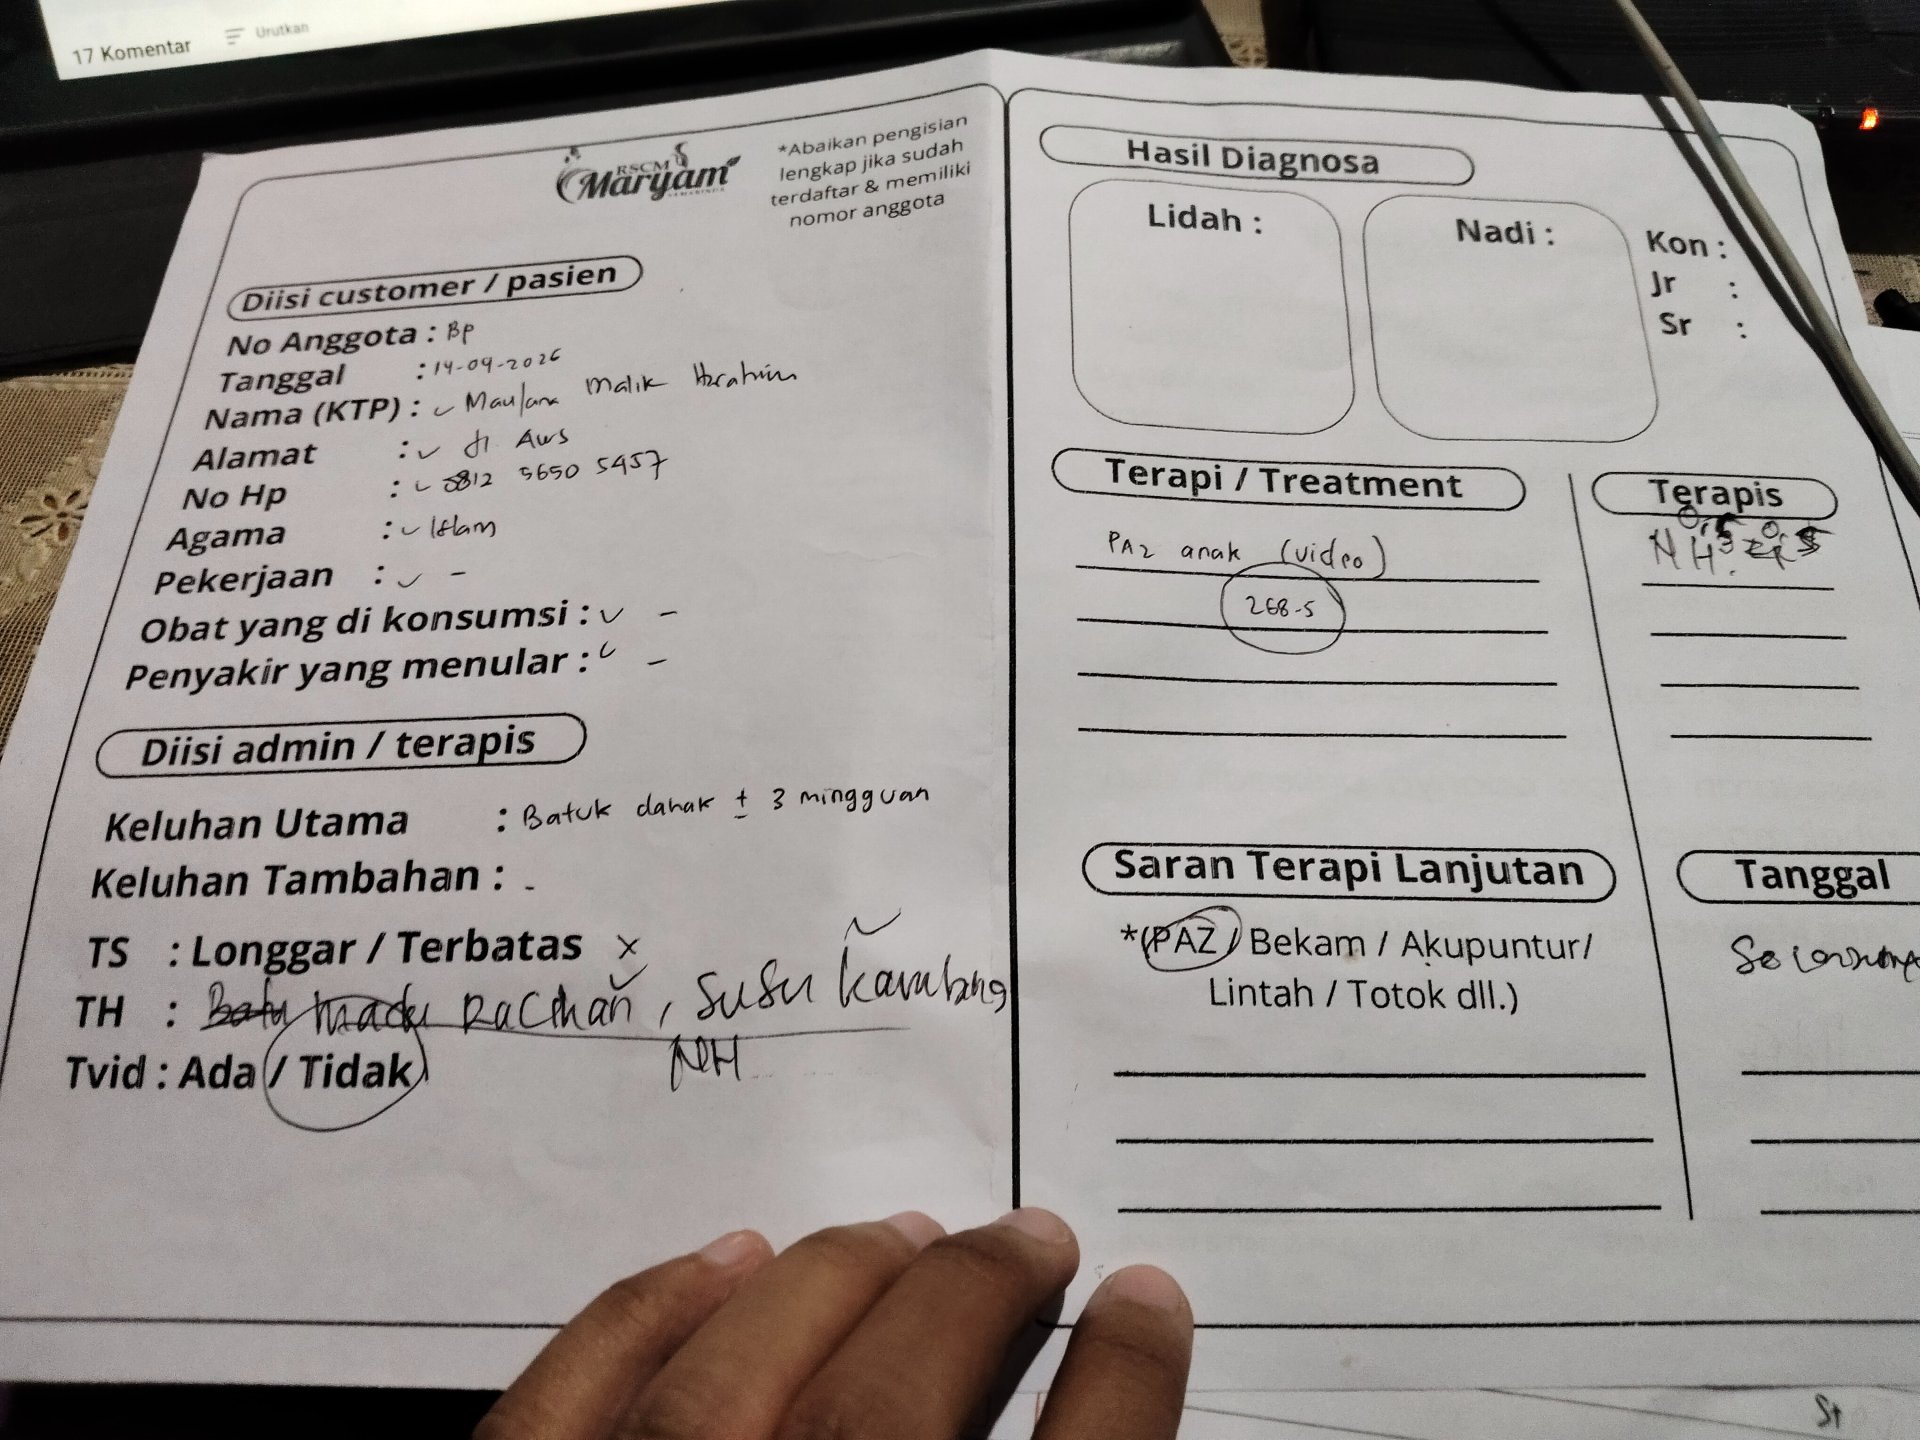 17 Komentar
Urutkan
RSCM
Maryam
*Abaikan pengisian
lengkap jika sudah
terdaftar & memiliki
nomor anggota
Diisi customer / pasien
No Anggota : Bp
Tanggal : 14-04-2026
Nama (KTP) : Maulana Malik Ibrahim
Alamat : Jl Aws
No Hp : 0812 5650 5457
Agama : Islam
Pekerjaan : -
Obat yang di konsumsi : -
Penyakir yang menular : -
Diisi admin / terapis
Keluhan Utama : Batuk dahak ± 3 mingguan
Keluhan Tambahan : -
TS : Longgar / Terbatas x
TH : madu Racikan, susu kambing
NH
Tvid : Ada / Tidak
Hasil Diagnosa
Lidah :
Nadi :
Kon :
Jr :
Sr :
Terapi / Treatment
PAZ anak (video)
268-5
Terapis
NH
Saran Terapi Lanjutan
*(PAZ / Bekam / Akupuntur/
Lintah / Totok dll.)
Tanggal